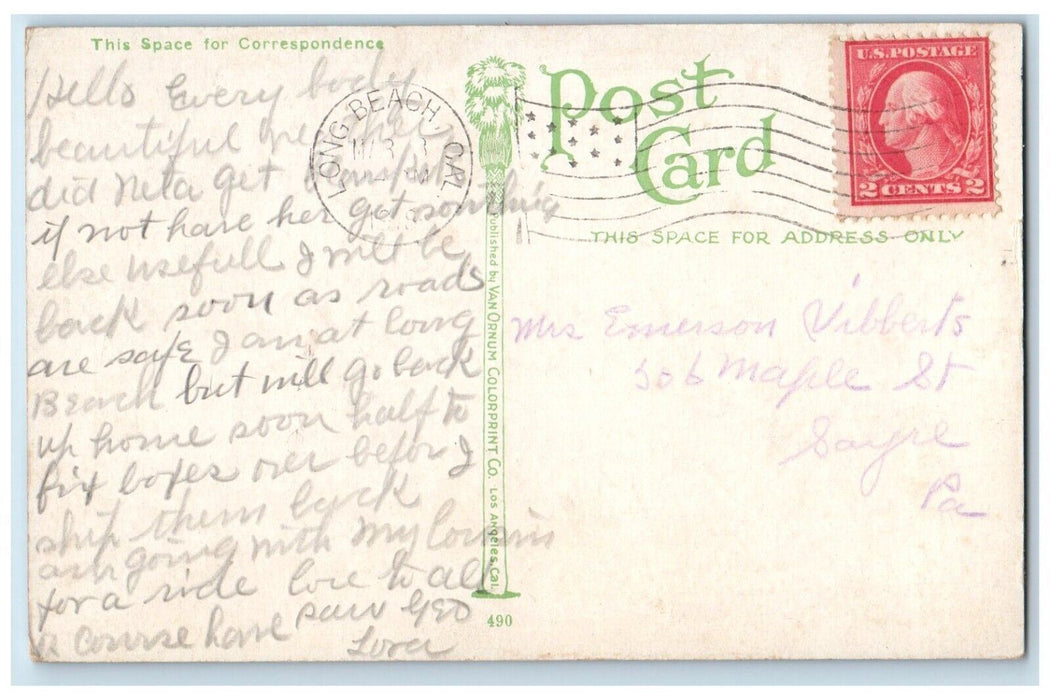 This Space for Correspondence
Hello Every body
beautiful weather
did Neta get
if not have her get somthing
else usefull I will be
back soon as roads
are safe I am at Long
Beach but will go back
up home soon half to
fix boxes over before I
ship them back
am going with my Cousin
for a ride love to all
a course have saw GEO
Lora
LONG BEACH, CAL.
MAR 3
Published by VAN ORNUM COLORPRINT CO. LOS ANGELES, CAL.
490
Post
Card
THIS SPACE FOR ADDRESS ONLY
U.S. POSTAGE
2 CENTS 2
Mrs Emerson Vibberts
506 Maple St
Sayre
Pa